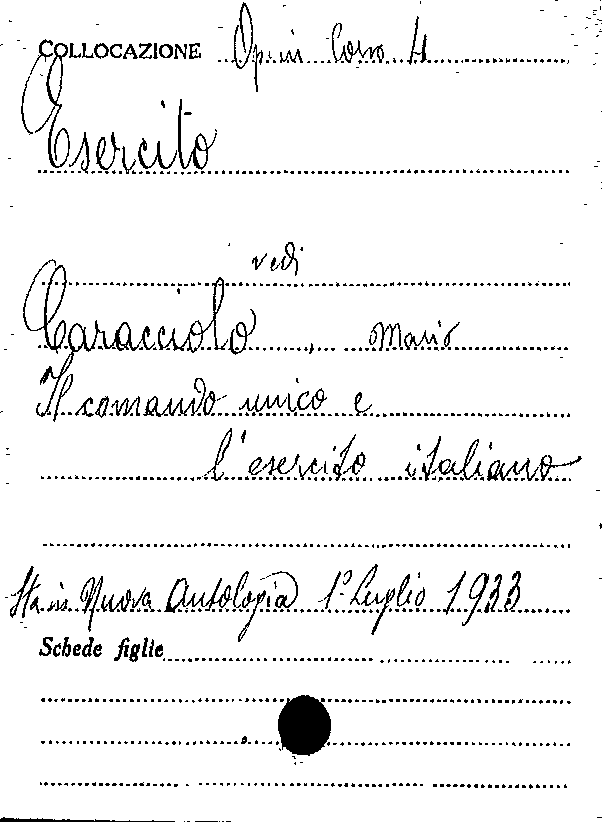 COLLOCAZIONE Op. in Cons 4
Esercito
vedi
Caracciolo, Mario
Il comando unico e
l'esercito italiano
Sta in Nuova Antologia 1° Luglio 1933
Schede figlie